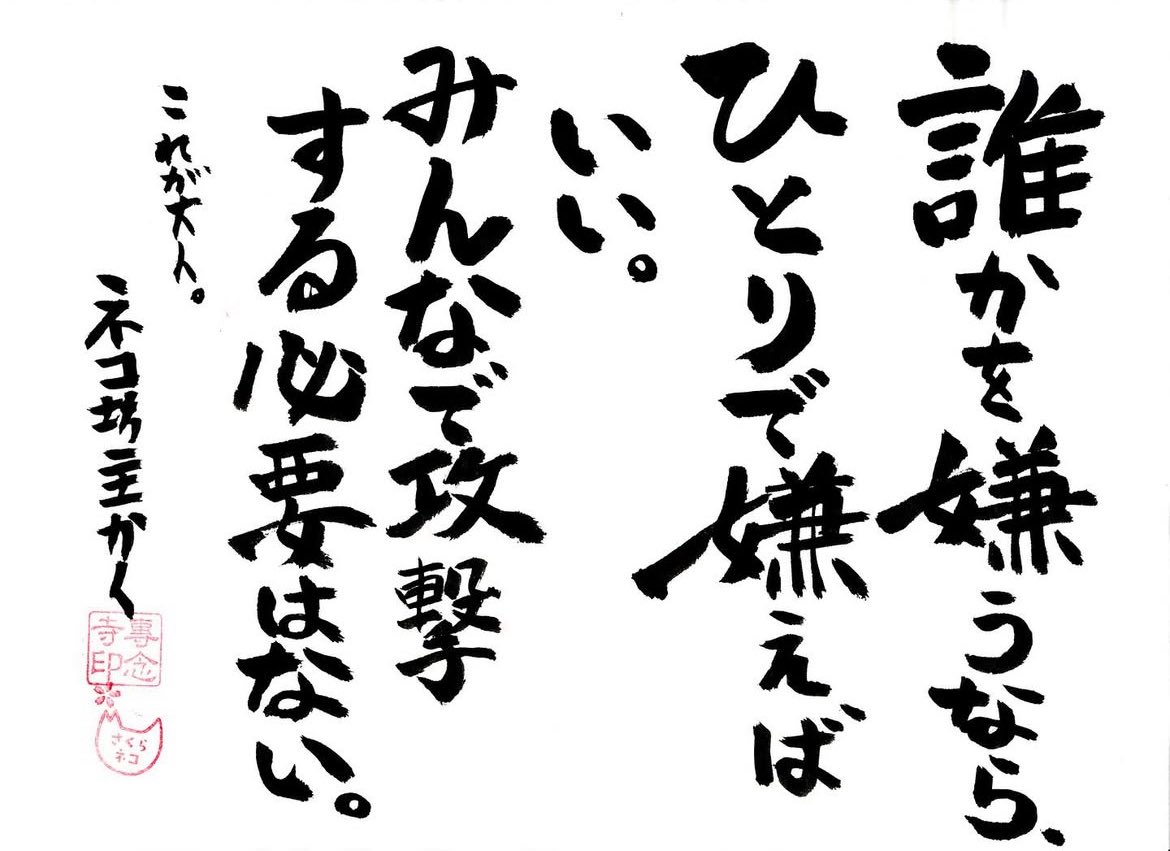 誰かを嫌うなら、
ひとりで嫌えば
いい。
みんなで攻撃
する必要はない。
これが大人。
ネコ坊主かく
專念
寺印
さくら
ネコ